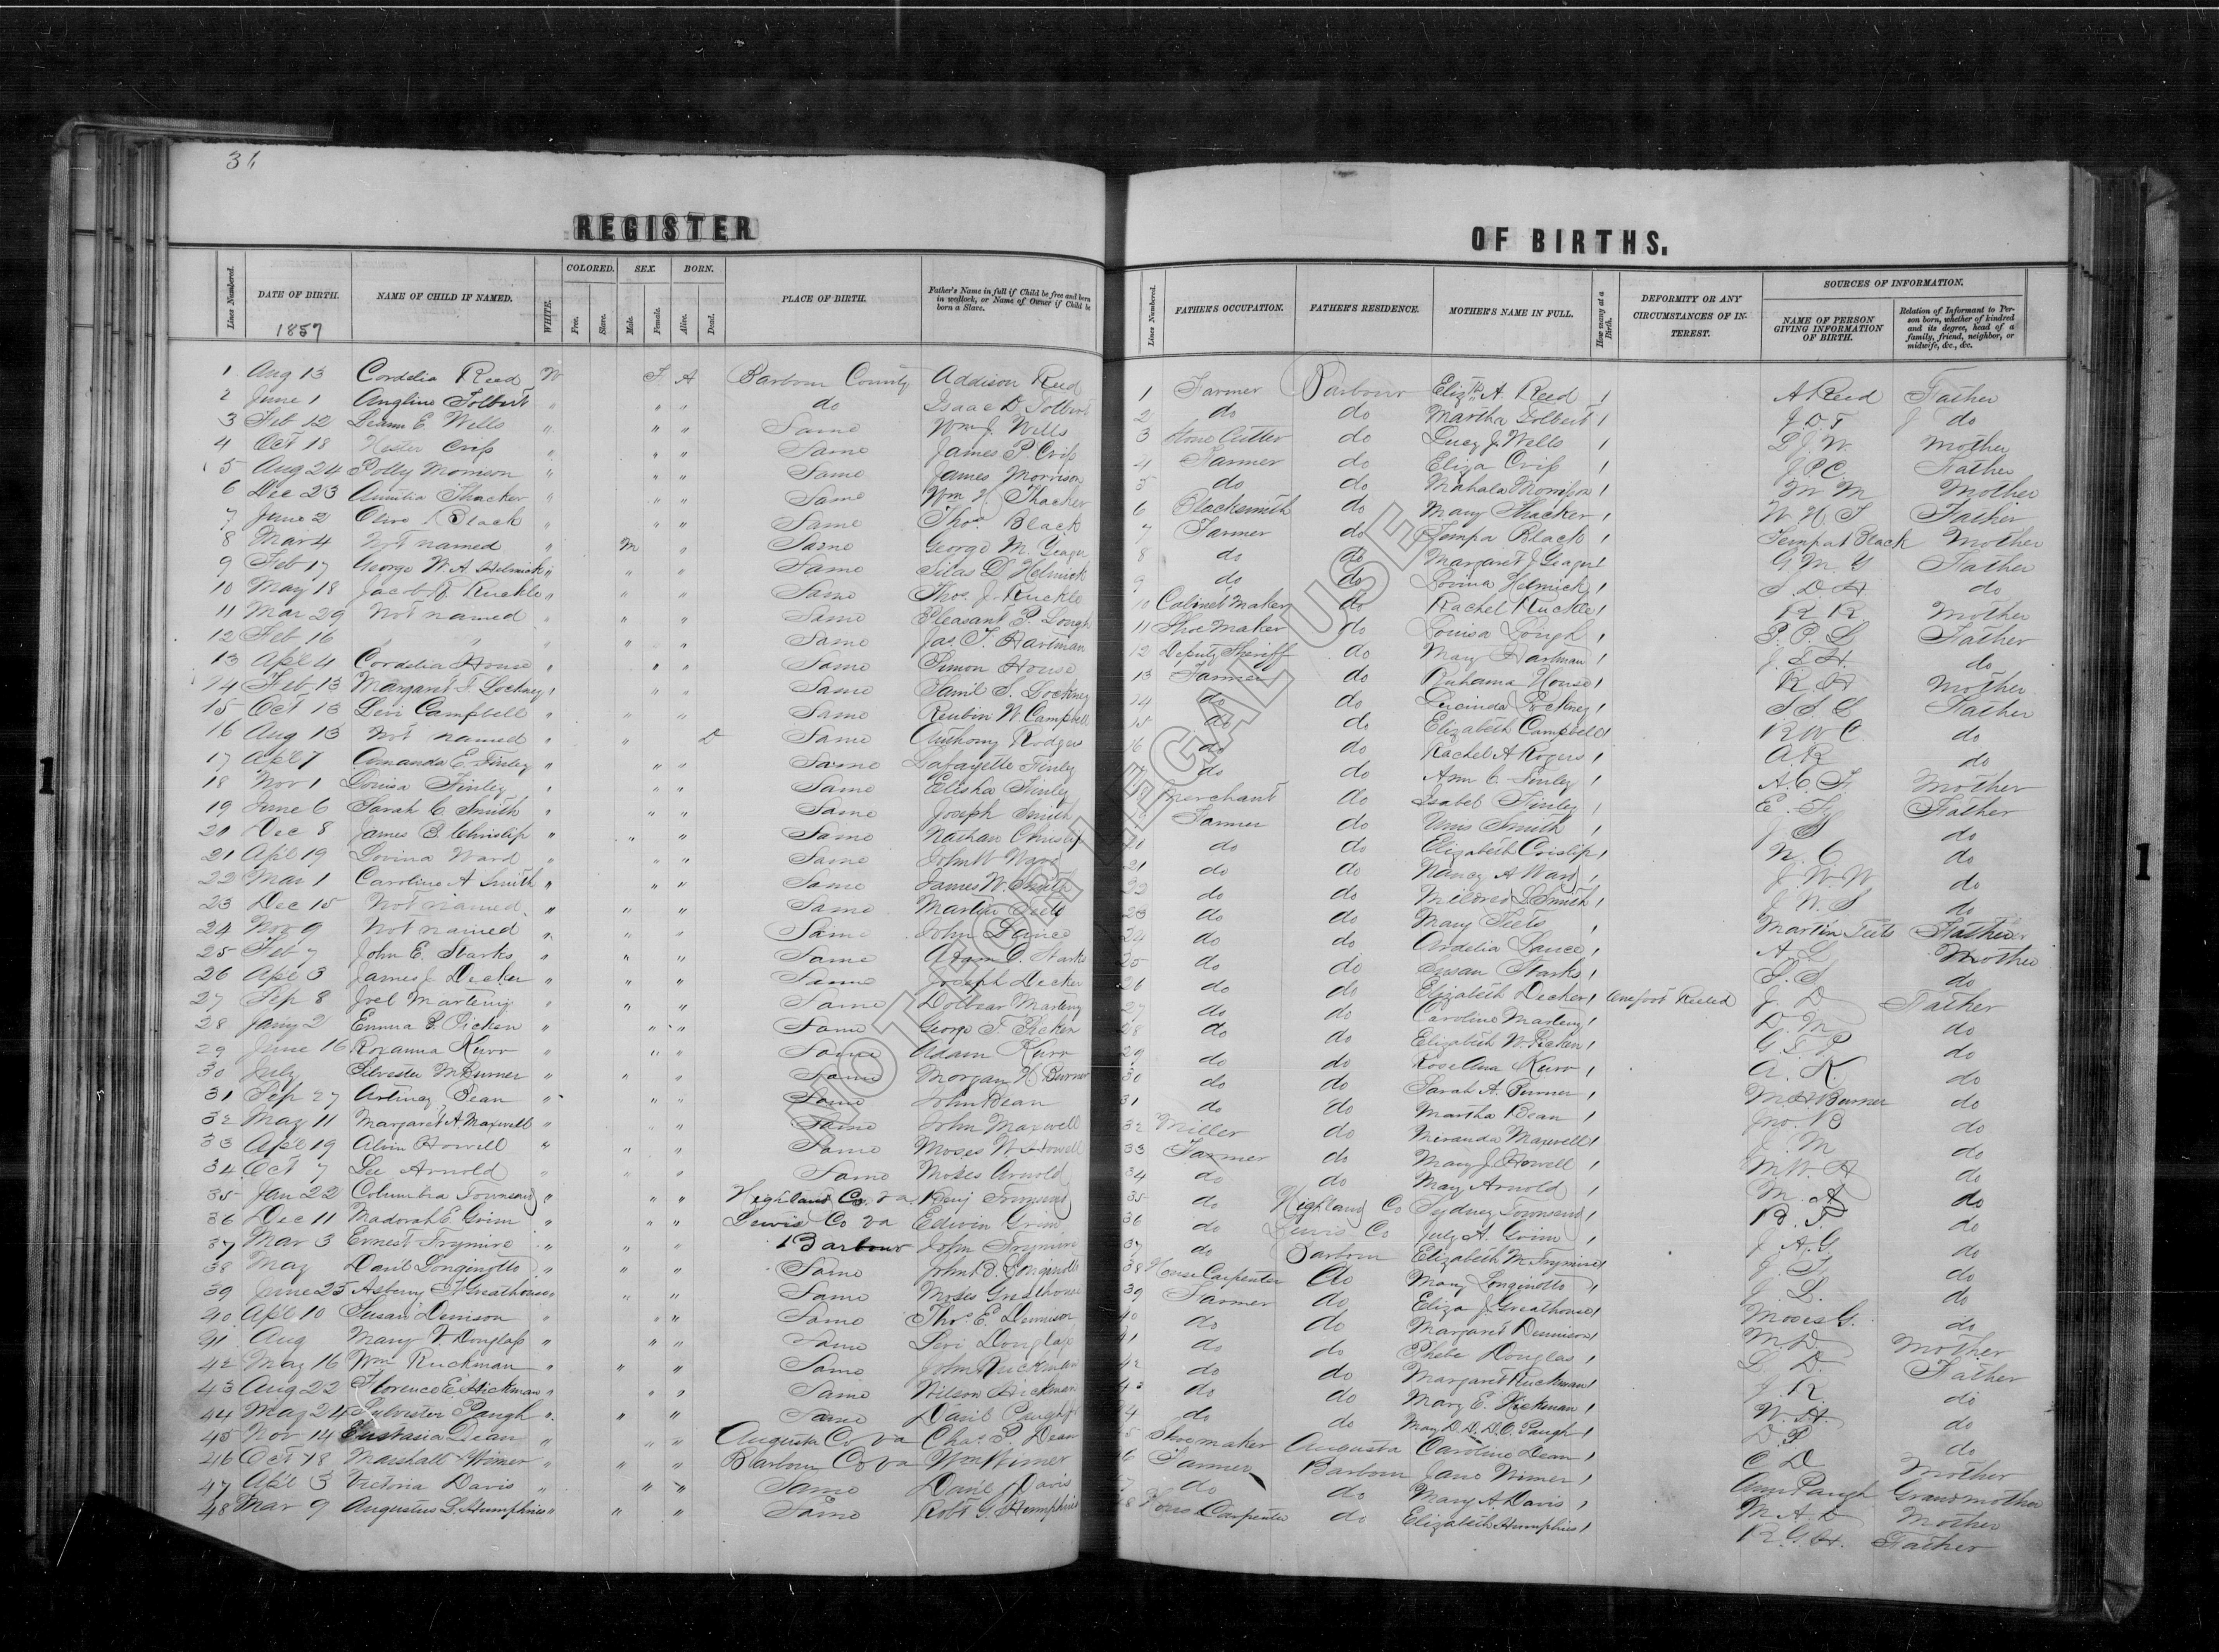 31
REGISTER
Lines Numbered.
DATE OF BIRTH.
NAME OF CHILD IF NAMED.
WHITE.
COLORED.
Free.
Slave.
SEX.
Male.
Female.
BORN.
Alive.
Dead.
PLACE OF BIRTH.
Father's Name in full if Child be free and born in wedlock, or Name of Owner if Child be born a Slave.
1857
1 Aug 13 Cordelia Reed W F A Barbour County Addison Reed
2 June 1 Angline Tolbert " " " do Isaac D Tolbert
3 Feb 12 E. Wells " " " Same Wm J. Wells
4 Oct 18 Hester Crip " " " Same James P. Crip
5 Aug 24 Polly Morrison " " " Same James Morrison
6 Dec 23 Thacker " " " Same Wm H. Thacker
7 June 2 Olive Black " " " Same Thos. Black
8 Mar 4 Not named " M " Same George M. Yeager
9 Feb 17 George W. A. Helmick " " " Same Silas D. Helmick
10 May 18 Jacob Ruckle " " " Same Thos J. Ruckle
11 Mar 29 Not named " " " Same Pleasant P. Lough
12 Feb 16 " " " " " Same Jas T. Hartman
13 Apl 4 Cordelia House " " " Same Simon House
14 Feb 13 Margaret F. Lockney " " " Same Saml S. Lockney
15 Oct 13 Levi Campbell " " " Same Reubin W. Campbell
16 Aug 13 Not named " " D Same Anthony Rodgers
17 Apl 7 Amanda E. Finley " " " Same Lafayette Finley
18 Nov 1 Louisa Finley " " " Same Elisha Finley
19 June 6 Sarah C. Smith " " " Same Joseph Smith
20 Dec 8 James B. Chrislip " " " Same Nathan Chrislip
21 Apl 19 Lovina Ward " " " Same John W Ward
22 Mar 1 Caroline A Smith " " " Same James W. Smith
23 Dec 15 Not named " " " Same Martin Teets
24 Nov 9 Not named " " " Same John Lance
25 Feb 7 John E. Starks " " " Same Adam C. Starks
26 Apl 3 James J. Decker " " " Same Joseph Decker
27 Sep 8 Joel Marteny " " " Same Dolbear Marteny
28 Jany 2 Emma B. Picken " " " Same George T. Picken
29 June 16 Rozanna Kurr " " " Same Adam Kurr
30 July Silvester M Burner " " " Same Morgan H Burner
31 Sep 27 Bean " " " Same John Bean
32 May 11 Margaret A. Maxwell " " " Same John Maxwell
33 Apl 19 Alvin Howell " " " Same Moses W. Howell
34 Oct 7 Lee Arnold " " " Same Moses Arnold
35 Jan 22 Columbia Townsend " " " Highland Co Va Benj Townsend
36 Dec 11 Madorah E. Grim " " " Lewis Co Va Edwin Grim
37 Mar 3 Ernest Frymire " " " Barbour John Frymire
38 May Danl Longinotto " " " Same John B. Longinotto
39 June 25 Asbury F. Greathouse " " " Same Moses Greathouse
40 Apl 10 Susan Denison " " " Same Thos. E. Dennison
41 Aug Mary V. Douglass " " " Same Levi Douglass
42 May 16 Wm Ruckman " " " Same John Ruckman
43 Aug 22 Florence E. Hickman " " " Same Wilson Hickman
44 May 24 Sylvester Paugh " " " Same Danl Paugh
45 Nov 14 Eustasia Dean " " " Augusta Co Va Chas. P. Dean
46 Oct 18 Marshall Wimer " " " Barbour Co Va Wm Wimer
47 Apl 3 Victoria Davis " " " Same Danl Davis
48 Mar 9 Augustus L. Humphries " " " Same Robt G. Humphries
OF BIRTHS.
Lines Numbered.
FATHER'S OCCUPATION.
FATHER'S RESIDENCE.
MOTHER'S NAME IN FULL.
How many at a Birth.
DEFORMITY OR ANY CIRCUMSTANCES OF INTEREST.
SOURCES OF INFORMATION.
NAME OF PERSON GIVING INFORMATION OF BIRTH.
Relation of Informant to Person born, whether of kindred and its degree, head of a family, friend, neighbor, or midwife, &c., &c.
1 Farmer Barbour Elizth A. Reed 1 A Reed Father
2 do do Martha Tolbert 1 J. D. T do
3 Stone Cutter do Lucy J. Wells 1 L J. W. Mother
4 Farmer do Eliza Crip 1 J. P. C. Father
5 do do Mahala Morrison 1 M M Mother
6 Blacksmith do Mary Thacker 1 W. H. T Father
7 Farmer do Tempa Black 1 Tempa Black Mother
8 do do Margaret J. Yeager 1 G M. Y Father
9 do do Lovina Helmick 1 S. D. H. do
10 Cabinet Maker do Rachel Ruckle 1 R R Mother
11 Shoe Maker do Louisa Lough 1 P. P. L Father
12 Deputy Sheriff do Mary Hartman 1 J. T. H. do
13 Farmer do Ruhama House 1 R H Mother
14 do do Lucinda Lockney 1 S. S. L Father
15 do do Elizabeth Campbell 1 R W C. do
16 do do Rachel A Rogers 1 A. R do
17 do do Ann C. Finley 1 A. C. F. Mother
18 Merchant do Isabel Finley 1 E. F. Father
19 Farmer do Unis Smith 1 J S do
20 do do Elizabeth Crislip 1 N. C do
21 do do Nancy A Ward 1 J. W. W do
22 do do Mildred L Smith 1 J. W. S do
23 do do Mary Teets 1 Martin Teets Father
24 do do Ardelia Lance 1 A L Mother
25 do do Susan Starks 1 S. S do
26 do do Elizabeth Decker 1 One foot Reeled J. D Father
27 do do Caroline Marteny 1 D. M do
28 do do Elizabeth W. Picken 1 G T. P do
29 do do Rose Ana Kurr 1 A. K. do
30 do do Sarah A. Burner 1 M. H. Burner do
31 do do Martha Bean 1 Jno. B do
32 Miller do Miranda Maxwell 1 J. M do
33 Farmer do Mary J. Howell 1 M. W. H do
34 do do Mary Arnold 1 M. A do
35 do Highland Co Sydney Townsend 1 B. T. do
36 do Lewis Co July A. Grim 1 J A. G do
37 do Barbour Elizabeth M. Frymire 1 J. F. do
38 House Carpenter do Mary Longinotto 1 J. L. do
39 Farmer do Eliza J. Greathouse 1 Moses G. do
40 do do Margaret Dennison 1 M. D. Mother
41 do do Phebe Douglas 1 L. D. Father
42 do do Margaret Ruckman 1 J. R. do
43 do do Mary E. Hickman 1 W. H. do
44 do do Mary D. D. D. C. Paugh 1 D. P do
45 Shoemaker Augusta Caroline Dean 1 C D Mother
46 Farmer Barbour Jane Wimer 1 Ann Paugh Grandmother
47 do do Mary A. Davis 1 M A. D Mother
48 House Carpenter do Elizabeth Humphries 1 R. G. H. Father
NOT FOR LEGAL USE
1
1